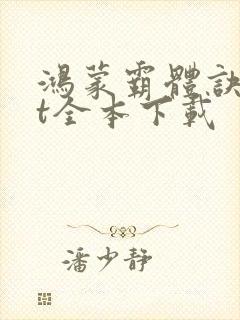 鴻蒙霸體訣
t全本下載
潘少静